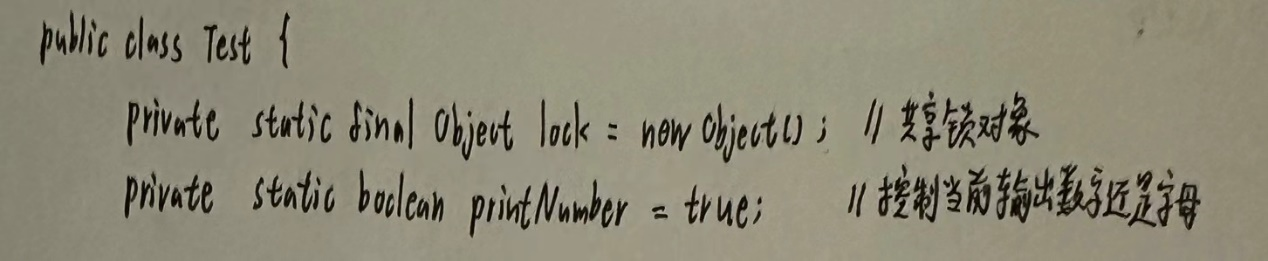 public class Test {
private static final Object lock = new Object(); // 共享锁对象
private static boolean printNumber = true; // 控制当前输出数字还是字母